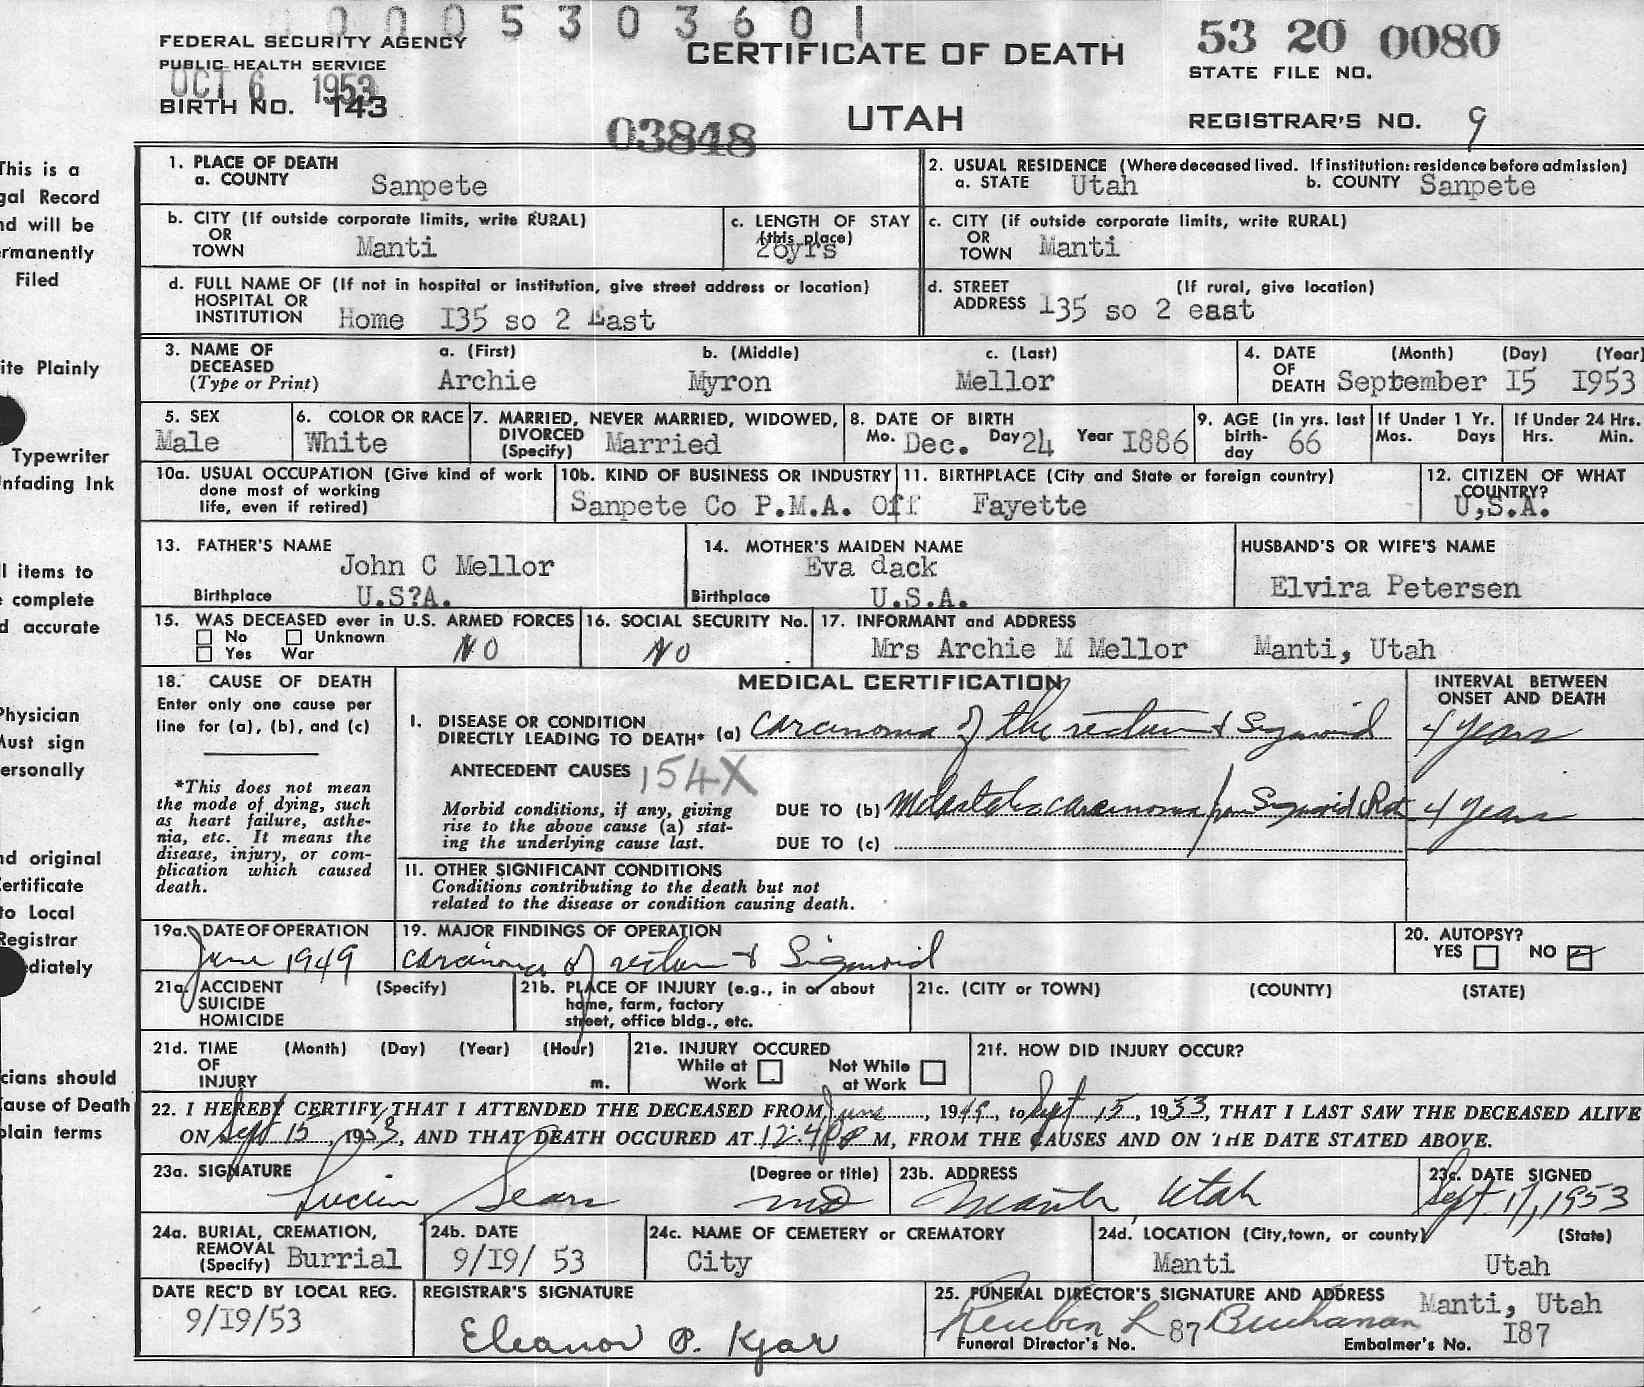 0 0 0 5 3 0 3 6 0 1
FEDERAL SECURITY AGENCY
PUBLIC HEALTH SERVICE
OCT 6 1953
BIRTH NO. 143
CERTIFICATE OF DEATH
UTAH
03848
53 20 0080
STATE FILE NO.
REGISTRAR'S NO. 9
This is a
gal Record
nd will be
rmanently
Filed
ite Plainly
Typewriter
nfading Ink
l items to
e complete
d accurate
Physician
Must sign
ersonally
nd original
Certificate
to Local
Registrar
diately
cians should
ause of Death
plain terms
1. PLACE OF DEATH
a. COUNTY Sanpete
2. USUAL RESIDENCE (Where deceased lived. If institution: residence before admission)
a. STATE Utah b. COUNTY Sanpete
b. CITY (If outside corporate limits, write RURAL)
OR
TOWN Manti
c. LENGTH OF STAY
(this place)
26yrs
c. CITY (if outside corporate limits, write RURAL)
OR
TOWN Manti
d. FULL NAME OF (If not in hospital or institution, give street address or location)
HOSPITAL OR
INSTITUTION Home I35 so 2 East
d. STREET (If rural, give location)
ADDRESS I35 so 2 east
3. NAME OF DECEASED (Type or Print)
a. (First) b. (Middle) c. (Last)
Archie Myron Mellor
4. DATE OF DEATH (Month) (Day) (Year)
September I5 I953
5. SEX
Male
6. COLOR OR RACE
White
7. MARRIED, NEVER MARRIED, WIDOWED,
DIVORCED
(Specify) Married
8. DATE OF BIRTH
Mo. Dec. Day 24 Year I886
9. AGE (in yrs. last
birth-
day 66
If Under 1 Yr.
Mos. Days
If Under 24 Hrs.
Hrs. Min.
10a. USUAL OCCUPATION (Give kind of work
done most of working
life, even if retired)
10b. KIND OF BUSINESS OR INDUSTRY
Sanpete Co P.M.A. Off
11. BIRTHPLACE (City and State or foreign country)
Fayette
12. CITIZEN OF WHAT
COUNTRY?
U,S.A.
13. FATHER'S NAME
John C Mellor
Birthplace U.S?A.
14. MOTHER'S MAIDEN NAME
Eva dack
Birthplace U.S.A.
HUSBAND'S OR WIFE'S NAME
Elvira Petersen
15. WAS DECEASED ever in U.S. ARMED FORCES
No Unknown
Yes War
NO
16. SOCIAL SECURITY No.
NO
17. INFORMANT and ADDRESS
Mrs Archie M Mellor Manti, Utah
18. CAUSE OF DEATH
Enter only one cause per
line for (a), (b), and (c)
*This does not mean
the mode of dying, such
as heart failure, asthe-
nia, etc. It means the
disease, injury, or com-
plication which caused
death.
MEDICAL CERTIFICATION
INTERVAL BETWEEN
ONSET AND DEATH
I. DISEASE OR CONDITION
DIRECTLY LEADING TO DEATH* (a) Carcinoma of the rectum & Sigmoid 4 years
ANTECEDENT CAUSES 154X
Morbid conditions, if any, giving
rise to the above cause (a) stat-
ing the underlying cause last.
DUE TO (b) carcinoma from Sigmoid 4 years
DUE TO (c)
II. OTHER SIGNIFICANT CONDITIONS
Conditions contributing to the death but not
related to the disease or condition causing death.
19a. DATE OF OPERATION
June 1949
19. MAJOR FINDINGS OF OPERATION
carcinoma of rectum & Sigmoid
20. AUTOPSY?
YES NO
21a. ACCIDENT (Specify)
SUICIDE
HOMICIDE
21b. PLACE OF INJURY (e.g., in or about
home, farm, factory
street, office bldg., etc.
21c. (CITY or TOWN) (COUNTY) (STATE)
21d. TIME (Month) (Day) (Year) (Hour)
OF
INJURY m.
21e. INJURY OCCURED
While at Work Not While at Work
21f. HOW DID INJURY OCCUR?
22. I HEREBY CERTIFY THAT I ATTENDED THE DECEASED FROM June, 1949, to Sept 15, 1953, THAT I LAST SAW THE DECEASED ALIVE
ON Sept 15, 1953, AND THAT DEATH OCCURED AT 12:40 P M, FROM THE CAUSES AND ON THE DATE STATED ABOVE.
23a. SIGNATURE (Degree or title)
Lucien Sears MD
23b. ADDRESS
Manti, Utah
23c. DATE SIGNED
Sept. 17, 1953
24a. BURIAL, CREMATION,
REMOVAL
(Specify) Burrial
24b. DATE
9/I9/ 53
24c. NAME OF CEMETERY or CREMATORY
City
24d. LOCATION (City, town, or county) (State)
Manti Utah
DATE REC'D BY LOCAL REG.
9/I9/53
REGISTRAR'S SIGNATURE
Eleanor P. Kjar
25. FUNERAL DIRECTOR'S SIGNATURE AND ADDRESS Manti, Utah
Reuben L Buchanan
Funeral Director's No. 87 Embalmer's No. I87